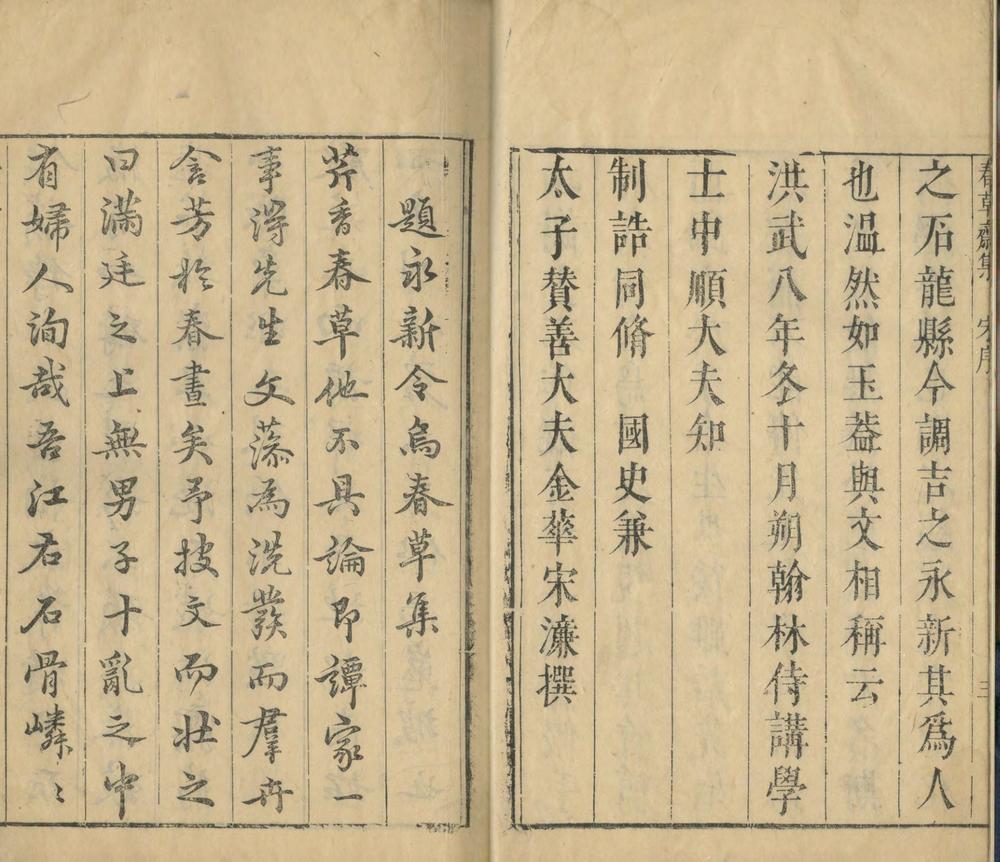 春草齋集 宋序 三
之石龍縣令調吉之永新其爲人
也溫然如玉葢與文相稱云
洪武八年冬十月朔翰林侍講學
士中順大夫知
制誥同脩 國史兼
太子贊善大夫金華宋濂撰
題永新令烏春草集
芹香春草他不具論即譚家一
事得先生文藻爲洗發而羣卉
含芳於春晝矣予披文而壯之
曰滿廷之上無男子十亂之中
有婦人洵哉吾江右石骨嶙〻